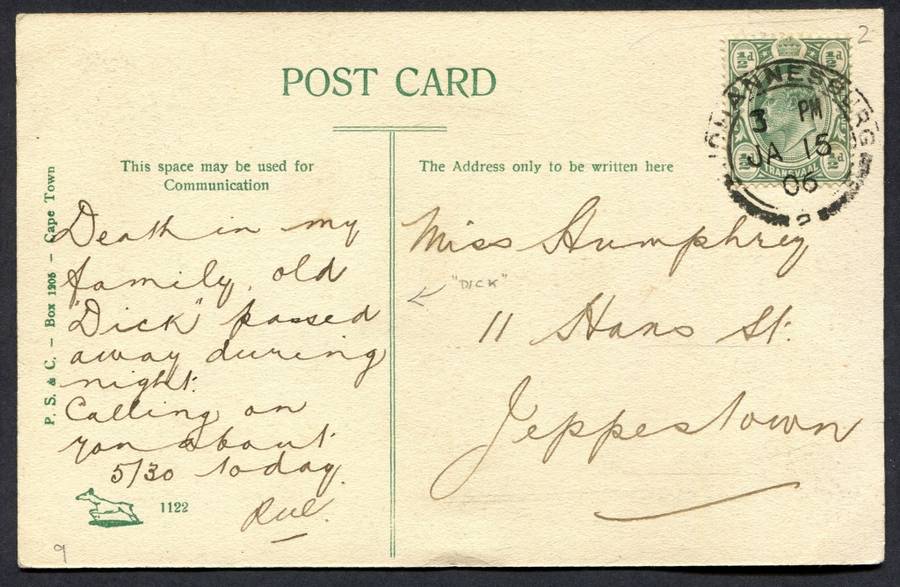 POST CARD
This space may be used for
Communication
The Address only to be written here
P. S. & C. – Box 1205 – Cape Town
Death in my
family, old
"Dick" passed
away during
night.
Calling on
you about
5/30 today.
1122
9
2
½d ½d
½d ½d
TRANSVAAL
JOHANNESBURG
3 PM
JA 15
06
2
Miss Humphrey
"DICK"
11 Hans St.
Jeppestown